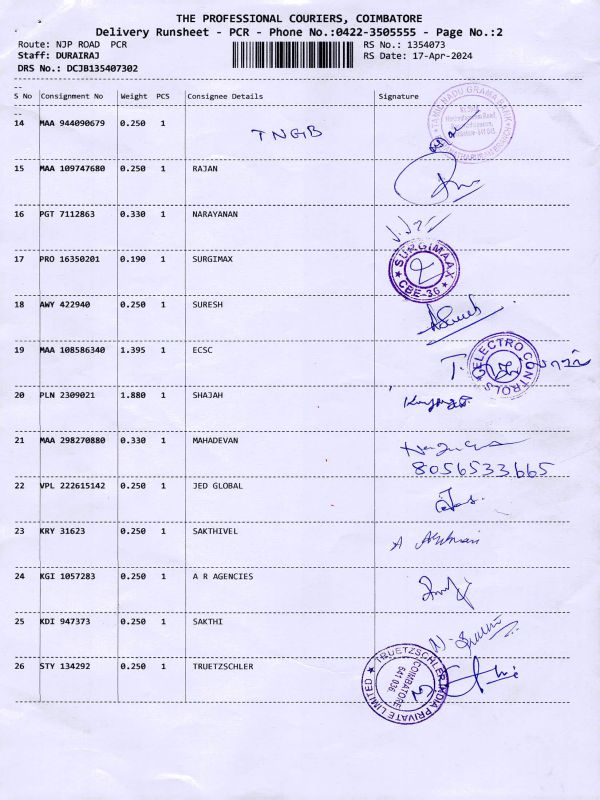 THE PROFESSIONAL COURIERS, COIMBATORE
Delivery Runsheet - PCR - Phone No.:0422-3505555 - Page No.:2
Route: NJP ROAD PCR
RS No.: 1354073
Staff: DURAIRAJ
RS Date: 17-Apr-2024
DRS No.: DCJB135407302
S No Consignment No Weight PCS Consignee Details Signature
14 MAA 944090679 0.250 1 TNGB
TAMIL NADU GRAMA BANK
15 MAA 109747680 0.250 1 RAJAN
16 PGT 7112863 0.330 1 NARAYANAN
17 PRO 16350201 0.190 1 SURGIMAX
SURGIMAAX
CBE-36
18 AWY 422940 0.250 1 SURESH
19 MAA 108586340 1.395 1 ECSC
ELECTRO CONTROLS
20 PLN 2309021 1.880 1 SHAJAH
21 MAA 298270880 0.330 1 MAHADEVAN
8056533665
22 VPL 222615142 0.250 1 JED GLOBAL
23 KRY 31623 0.250 1 SAKTHIVEL
24 KGI 1057283 0.250 1 A R AGENCIES
25 KDI 947373 0.250 1 SAKTHI
26 STY 134292 0.250 1 TRUETZSCHLER
TRUETZSCHLER INDIA PRIVATE LIMITED
COIMBATORE
641 036